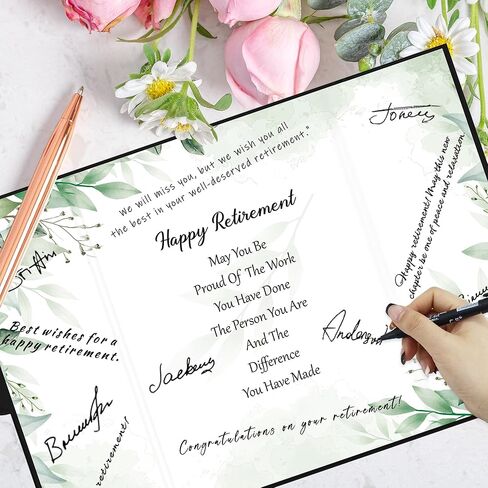 We will miss you, but we wish you all
the best in your well-deserved retirement."
Happy Retirement
May You Be
Proud Of The Work
You Have Done
The Person You Are
And The
Difference
You Have Made
Congratulations on your retirement!
Best wishes for a
happy retirement.
Happy retirement! May this new
chapter be one of peace and relaxation
retirement!